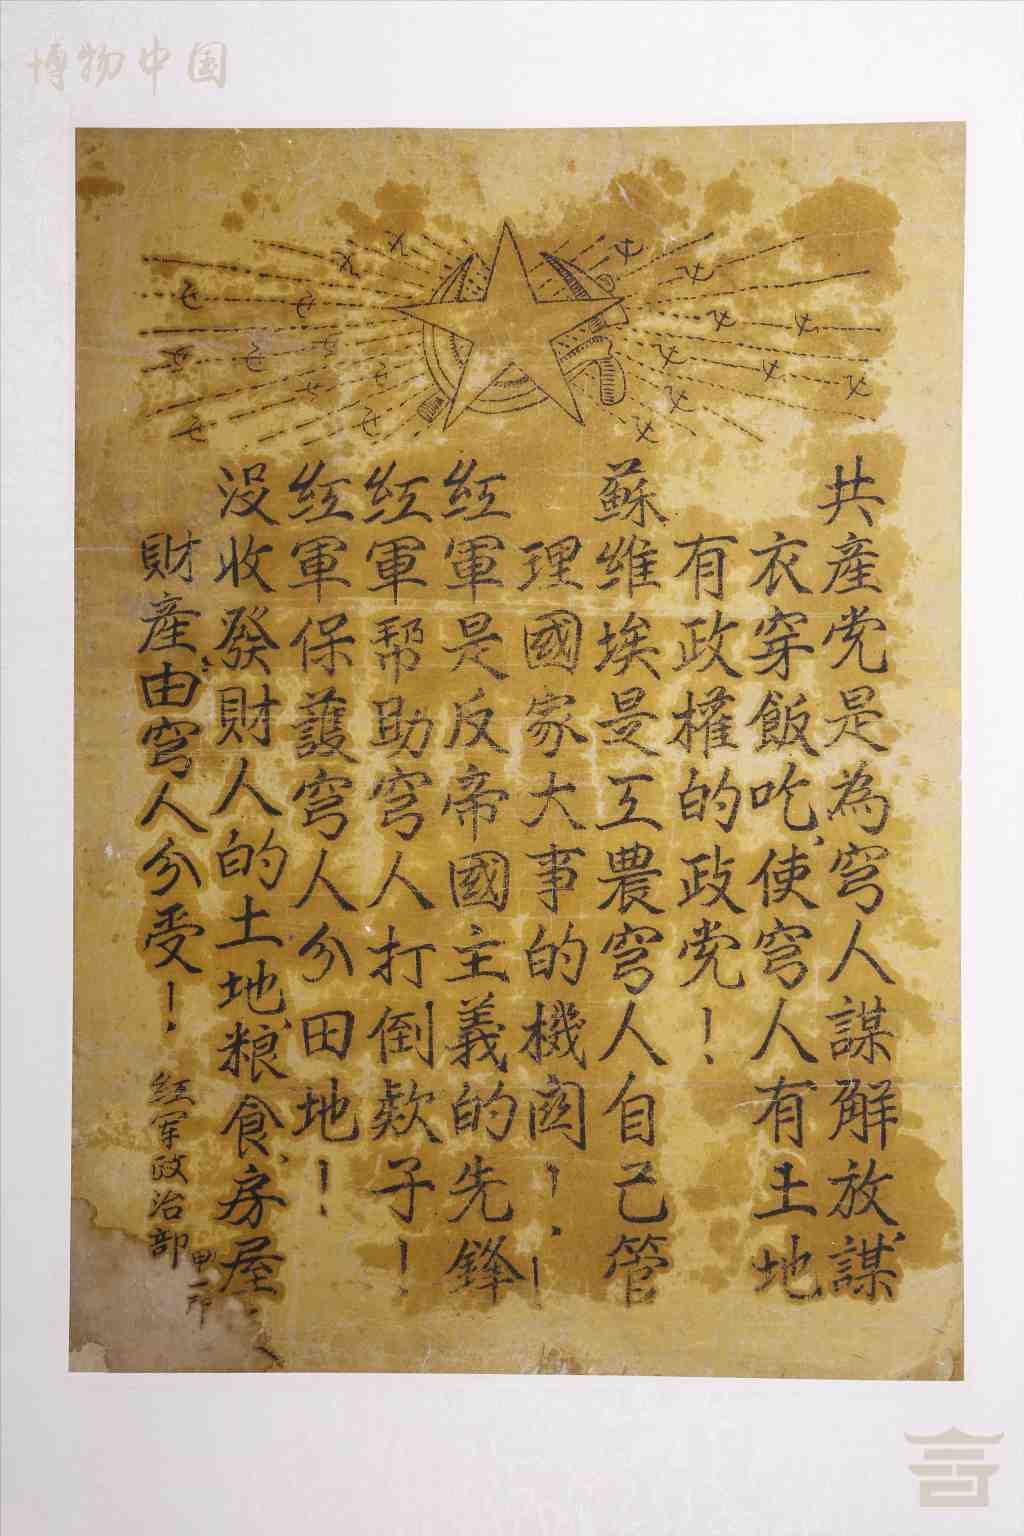 博物中国
共產党是為穷人謀解放、謀
衣穿飯吃、使穷人有土地
有政權的政党！
蘇维埃是工農穷人自己管
理國家大事的機関！
紅軍是反帝國主義的先鋒！
紅軍帮助穷人打倒欵子！
紅軍保護穷人分田地！
没收發財人的土地、粮食、房屋、
財產、由穷人分受！
紅军政治部
甲一印